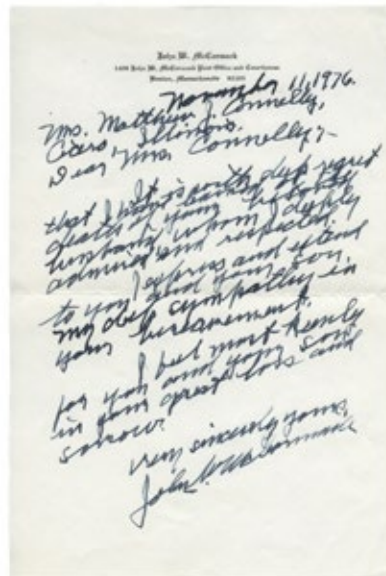 John W. McCormack
1400 John W. McCormack Post Office and Courthouse
Boston, Massachusetts
November 11, 1976.
Mrs. Matthew J. Connelly,
Cicero, Illinois.
Dear Mrs. Connelly;-
It is with deep regret
that I learned of the
death of your
husband whom I deeply
admired and respected.
I express and extend
to you and your son,
my deep sympathy in
your bereavement.
I feel most keenly
for you and your son
in your great loss and
sorrow.
Very sincerely yours,
John W. McCormack